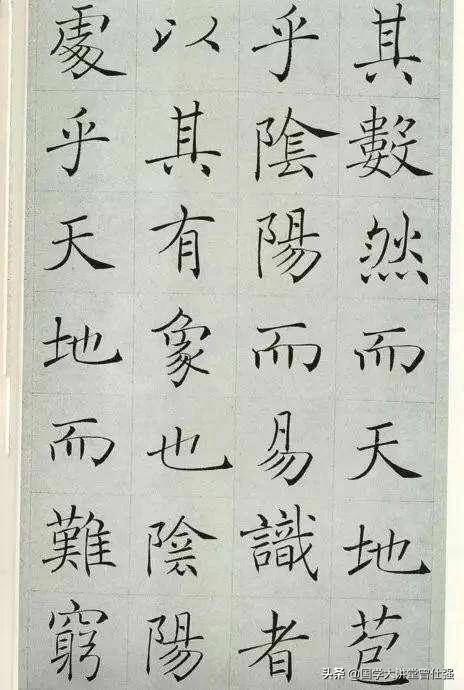 其數然而天地苞
乎陰陽而易識者
以其有象也陰陽
處乎天地而難窮
头条 @国学大讲堂曾仕强